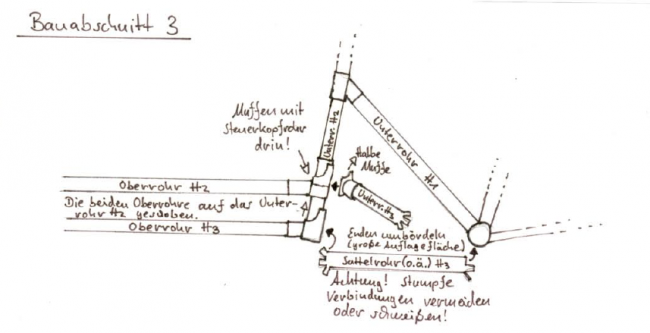 Bauabschnitt 3
Muffen mit
Steuerkopfrohr
drin!
Unterr. #2
Unterrohr #1
Halbe
Muffe
Unterr. #3
Oberrohr #2
Die beiden Oberrohre auf das Unter-
rohr #2 geschoben.
Oberrohr #3
Enden umbördeln
(große Auflagefläche)
Sattelrohr (o.ä.) #3
Achtung! Stumpfe
Verbindungen vermeiden
oder schweißen!